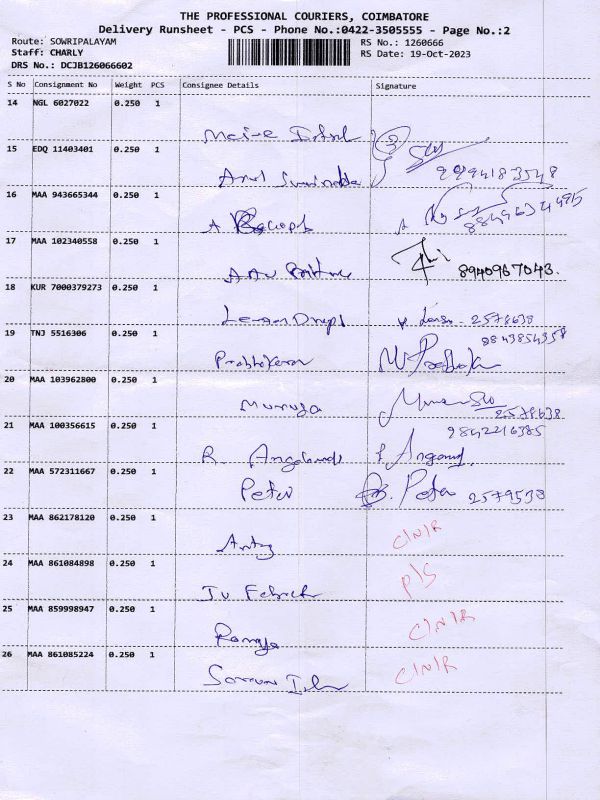 THE PROFESSIONAL COURIERS, COIMBATORE
Delivery Runsheet - PCS - Phone No.:0422-3505555 - Page No.:2
Route: SOWRIPALAYAM RS No.: 1260666
Staff: CHARLY RS Date: 19-Oct-2023
DRS No.: DCJB126066602
S No Consignment No Weight PCS Consignee Details Signature
14 NGL 6027022 0.250 1
15 EDQ 11403401 0.250 1
9994183548
16 MAA 943665344 0.250 1
17 MAA 102340558 0.250 1
8940967043.
18 KUR 7000379273 0.250 1
2578638
19 TNJ 5516306 0.250 1
9843854358
Prabhakaran
20 MAA 103962800 0.250 1
Muruga 2578638
21 MAA 100356615 0.250 1
9842216385
R.
22 MAA 572311667 0.250 1
Peter Peter 2579538
23 MAA 862178120 0.250 1
Antny C/N/R
24 MAA 861084898 0.250 1
P/S
25 MAA 859998947 0.250 1
Ramya C/N/R
26 MAA 861085224 0.250 1
C/N/R